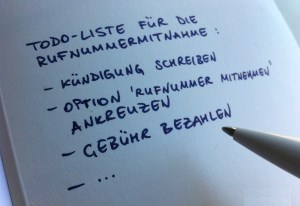 TODO-LISTE FÜR DIE
RUFNUMMERMITNAHME :
- KÜNDIGUNG SCHREIBEN
- OPTION 'RUFNUMMER MITNEHMEN'
ANKREUZEN
- GEBÜHR BEZAHLEN
- ...